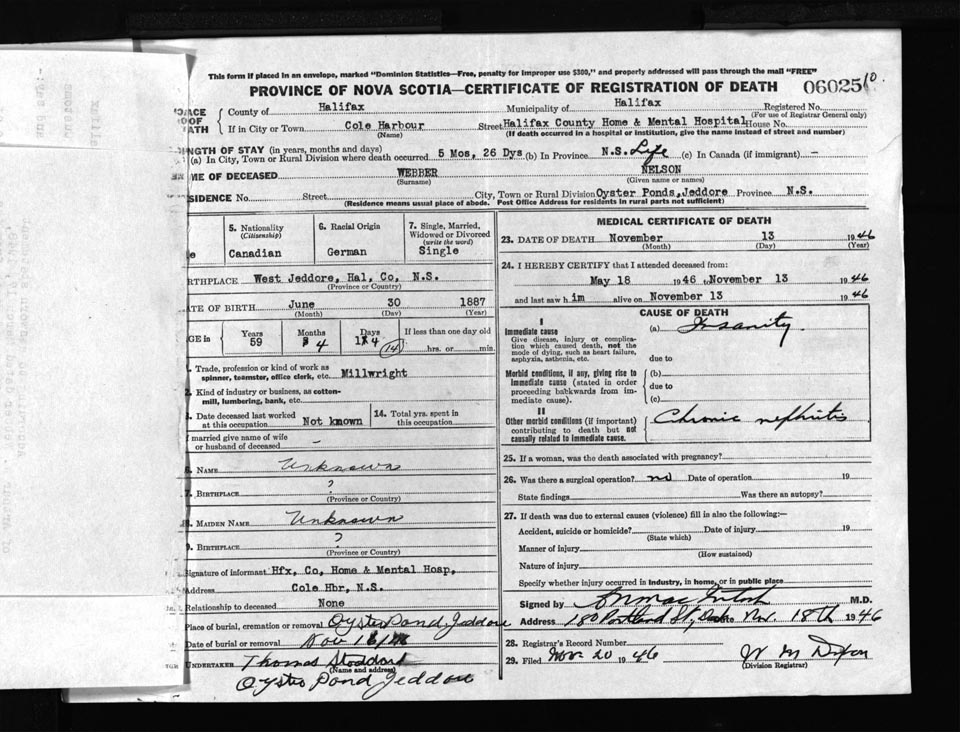 This form if placed in an envelope, marked "Dominion Statistics—Free, penalty for improper use $300," and properly addressed will pass through the mail "FREE"
PROVINCE OF NOVA SCOTIA—CERTIFICATE OF REGISTRATION OF DEATH 06025
County of Halifax Municipality of Halifax Registered No.
(For use of Registrar General only)
If in City or Town Cole Harbour Street Halifax County Home & Mental Hospital House No.
(Name) (If death occurred in a hospital or institution, give the name instead of street and number)
NGTH OF STAY (in years, months and days)
(a) In City, Town or Rural Division where death occurred 5 Mos, 26 Dys (b) In Province N.S. Life (c) In Canada (if immigrant) —
ME OF DECEASED WEBBER NELSON
(Surname) (Given name or names)
SIDENCE No. Street City, Town or Rural Division Oyster Ponds, Jeddore Province N.S.
(Residence means usual place of abode. Post Office Address for residents in rural parts not sufficient)
5. Nationality 6. Racial Origin 7. Single, Married,
(Citizenship) Widowed or Divorced
(write the word)
Canadian German Single
RTHPLACE West Jeddore, Hal, Co, N.S.
(Province or Country)
ATE OF BIRTH June 30 1887
(Month) (Day) (Year)
GE in Years Months Days If less than one day old
59 4 14 hrs. or min.
Trade, profession or kind of work as
spinner, teamster, office clerk, etc. Millwright
Kind of industry or business, as cotton-
mill, lumbering, bank, etc.
Date deceased last worked 14. Total yrs. spent in
at this occupation Not known this occupation
married give name of wife
or husband of deceased –
NAME Unknown
7. BIRTHPLACE ?
(Province or Country)
MAIDEN NAME Unknown
9. BIRTHPLACE ?
(Province or Country)
Signature of informant Hfx, Co, Home & Mental Hosp,
Address Cole Hbr, N.S.
Relationship to deceased None
Place of burial, cremation or removal Oyster Pond Jeddore
Date of burial or removal Nov
UNDERTAKER Thomas Stoddard
(Name and address)
Oyster Pond Jeddore
MEDICAL CERTIFICATE OF DEATH
23. DATE OF DEATH November 13 1946
(Month) (Day) (Year)
24. I HEREBY CERTIFY that I attended deceased from:
May 18 1946 to November 13 1946
and last saw him alive on November 13 1946
CAUSE OF DEATH
I
Immediate cause (a) Insanity
Give disease, injury or complica-
tion which caused death, not the
mode of dying, such as heart failure,
asphyxia, asthenia, etc. due to
Morbid conditions, if any, giving rise to (b)
immediate cause (stated in order due to
proceeding backwards from im-
mediate cause). (c)
II
Other morbid conditions (if important) Chronic nephritis
contributing to death but not
causally related to immediate cause.
25. If a woman, was the death associated with pregnancy?
26. Was there a surgical operation? no Date of operation 19
State findings Was there an autopsy?
27. If death was due to external causes (violence) fill in also the following:—
Accident, suicide or homicide? Date of injury 19
(State which)
Manner of injury
(How sustained)
Nature of injury
Specify whether injury occurred in industry, in home, or in public place
Signed by M.D.
Address 180 Portland St, Date Nov. 18th 1946
28. Registrar's Record Number
29. Filed Nov 20 1946 W M Dixon
(Division Registrar)